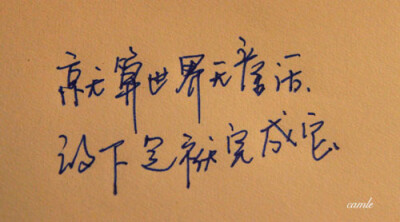 就算世界无童话、
放下包袱完成它、
camle